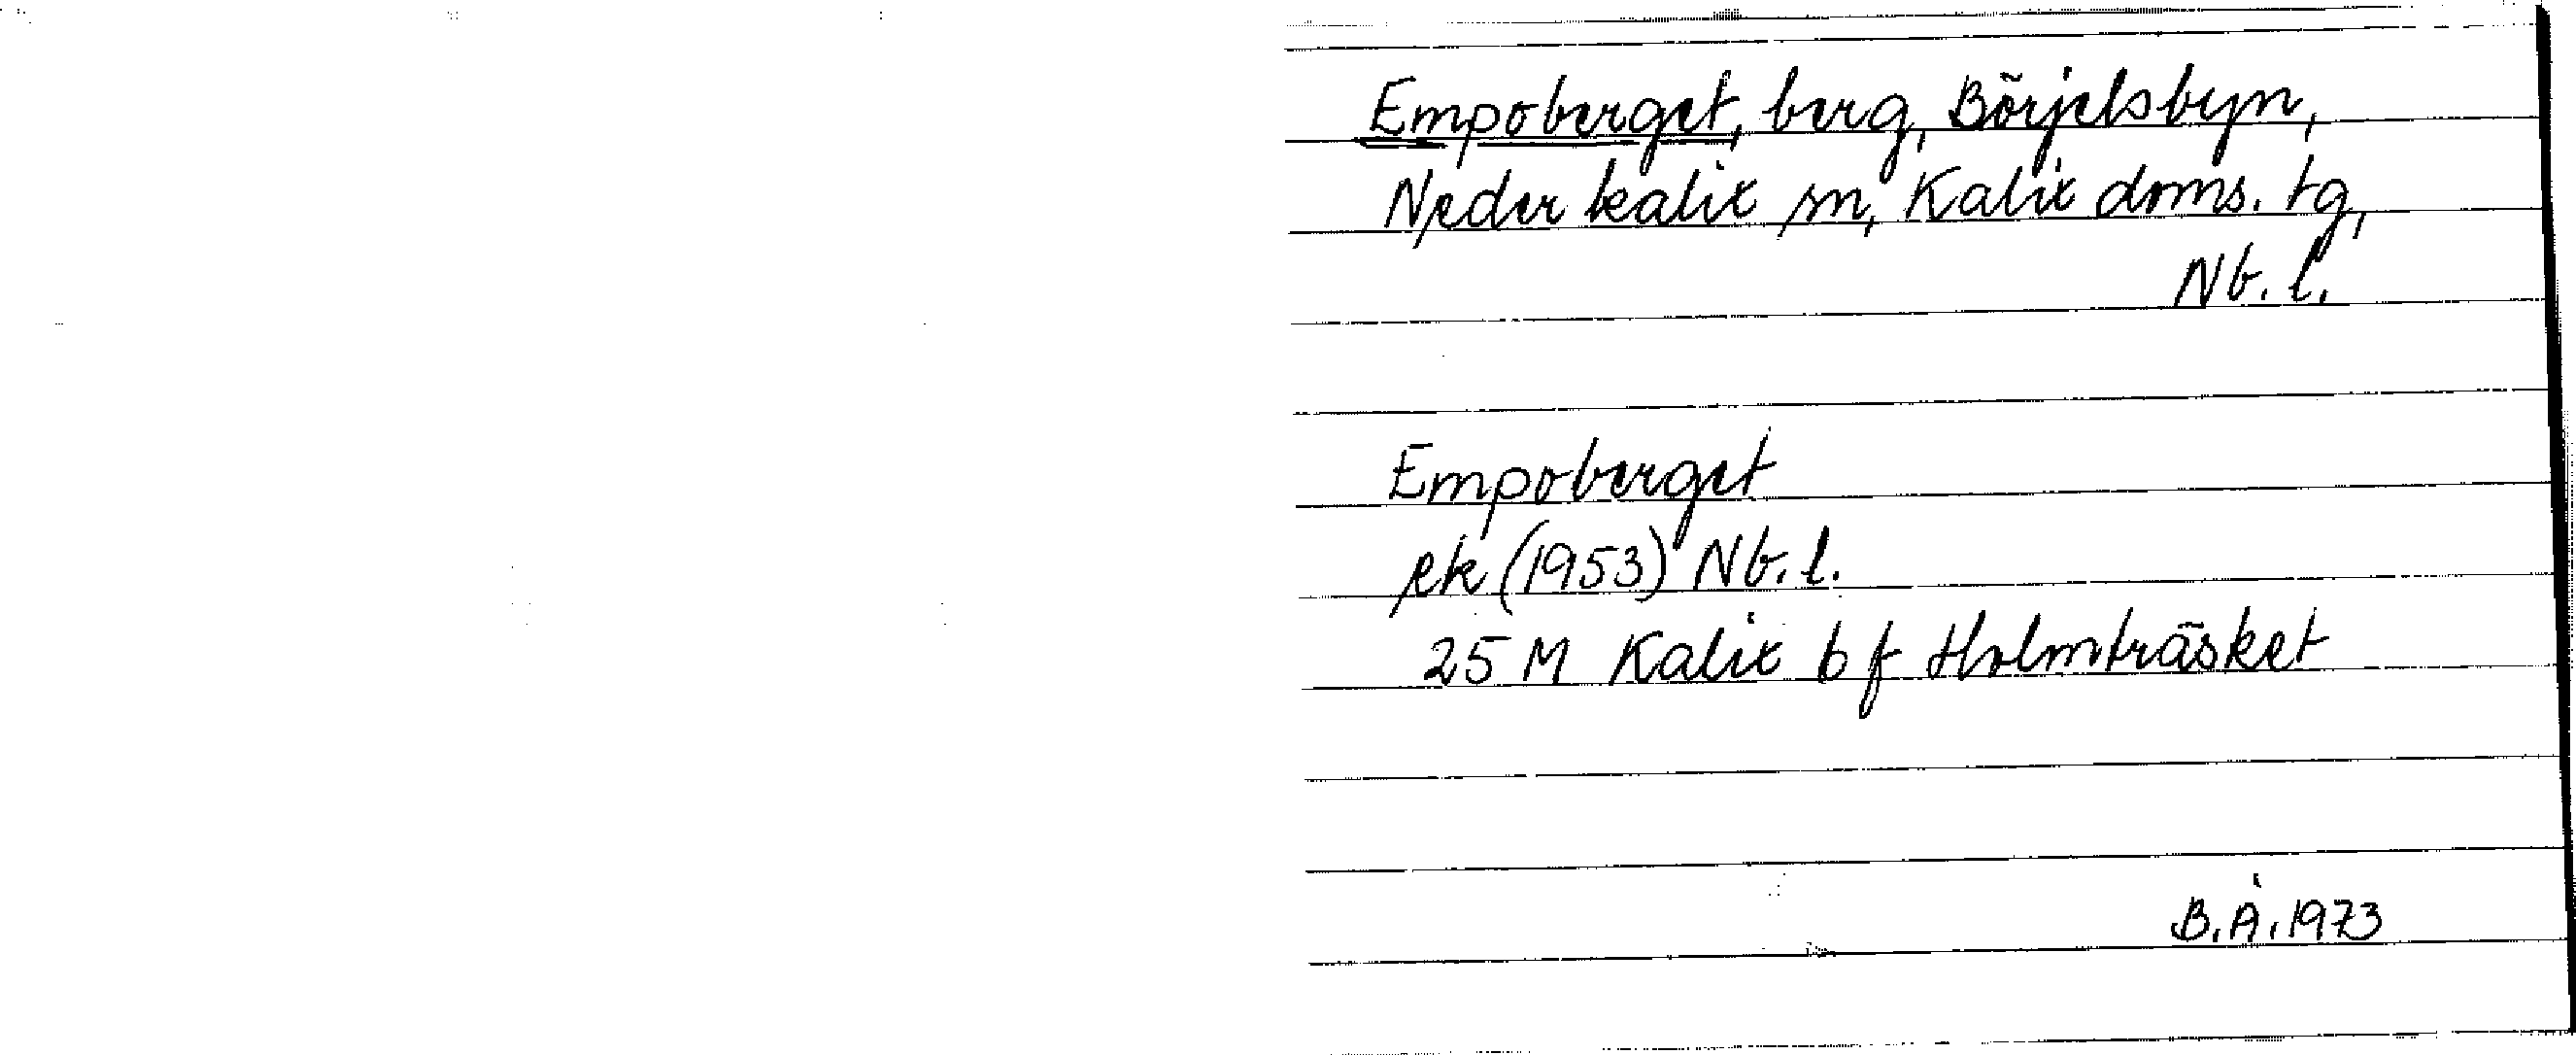 Empoberget, berg, Börjelsbyn,
Nederkalix sn, Kalix doms. tg,
Nb. l.
Empoberget
ek (1953) Nb. l.
25 M Kalix b f Holmträsket
B. Å. 1973